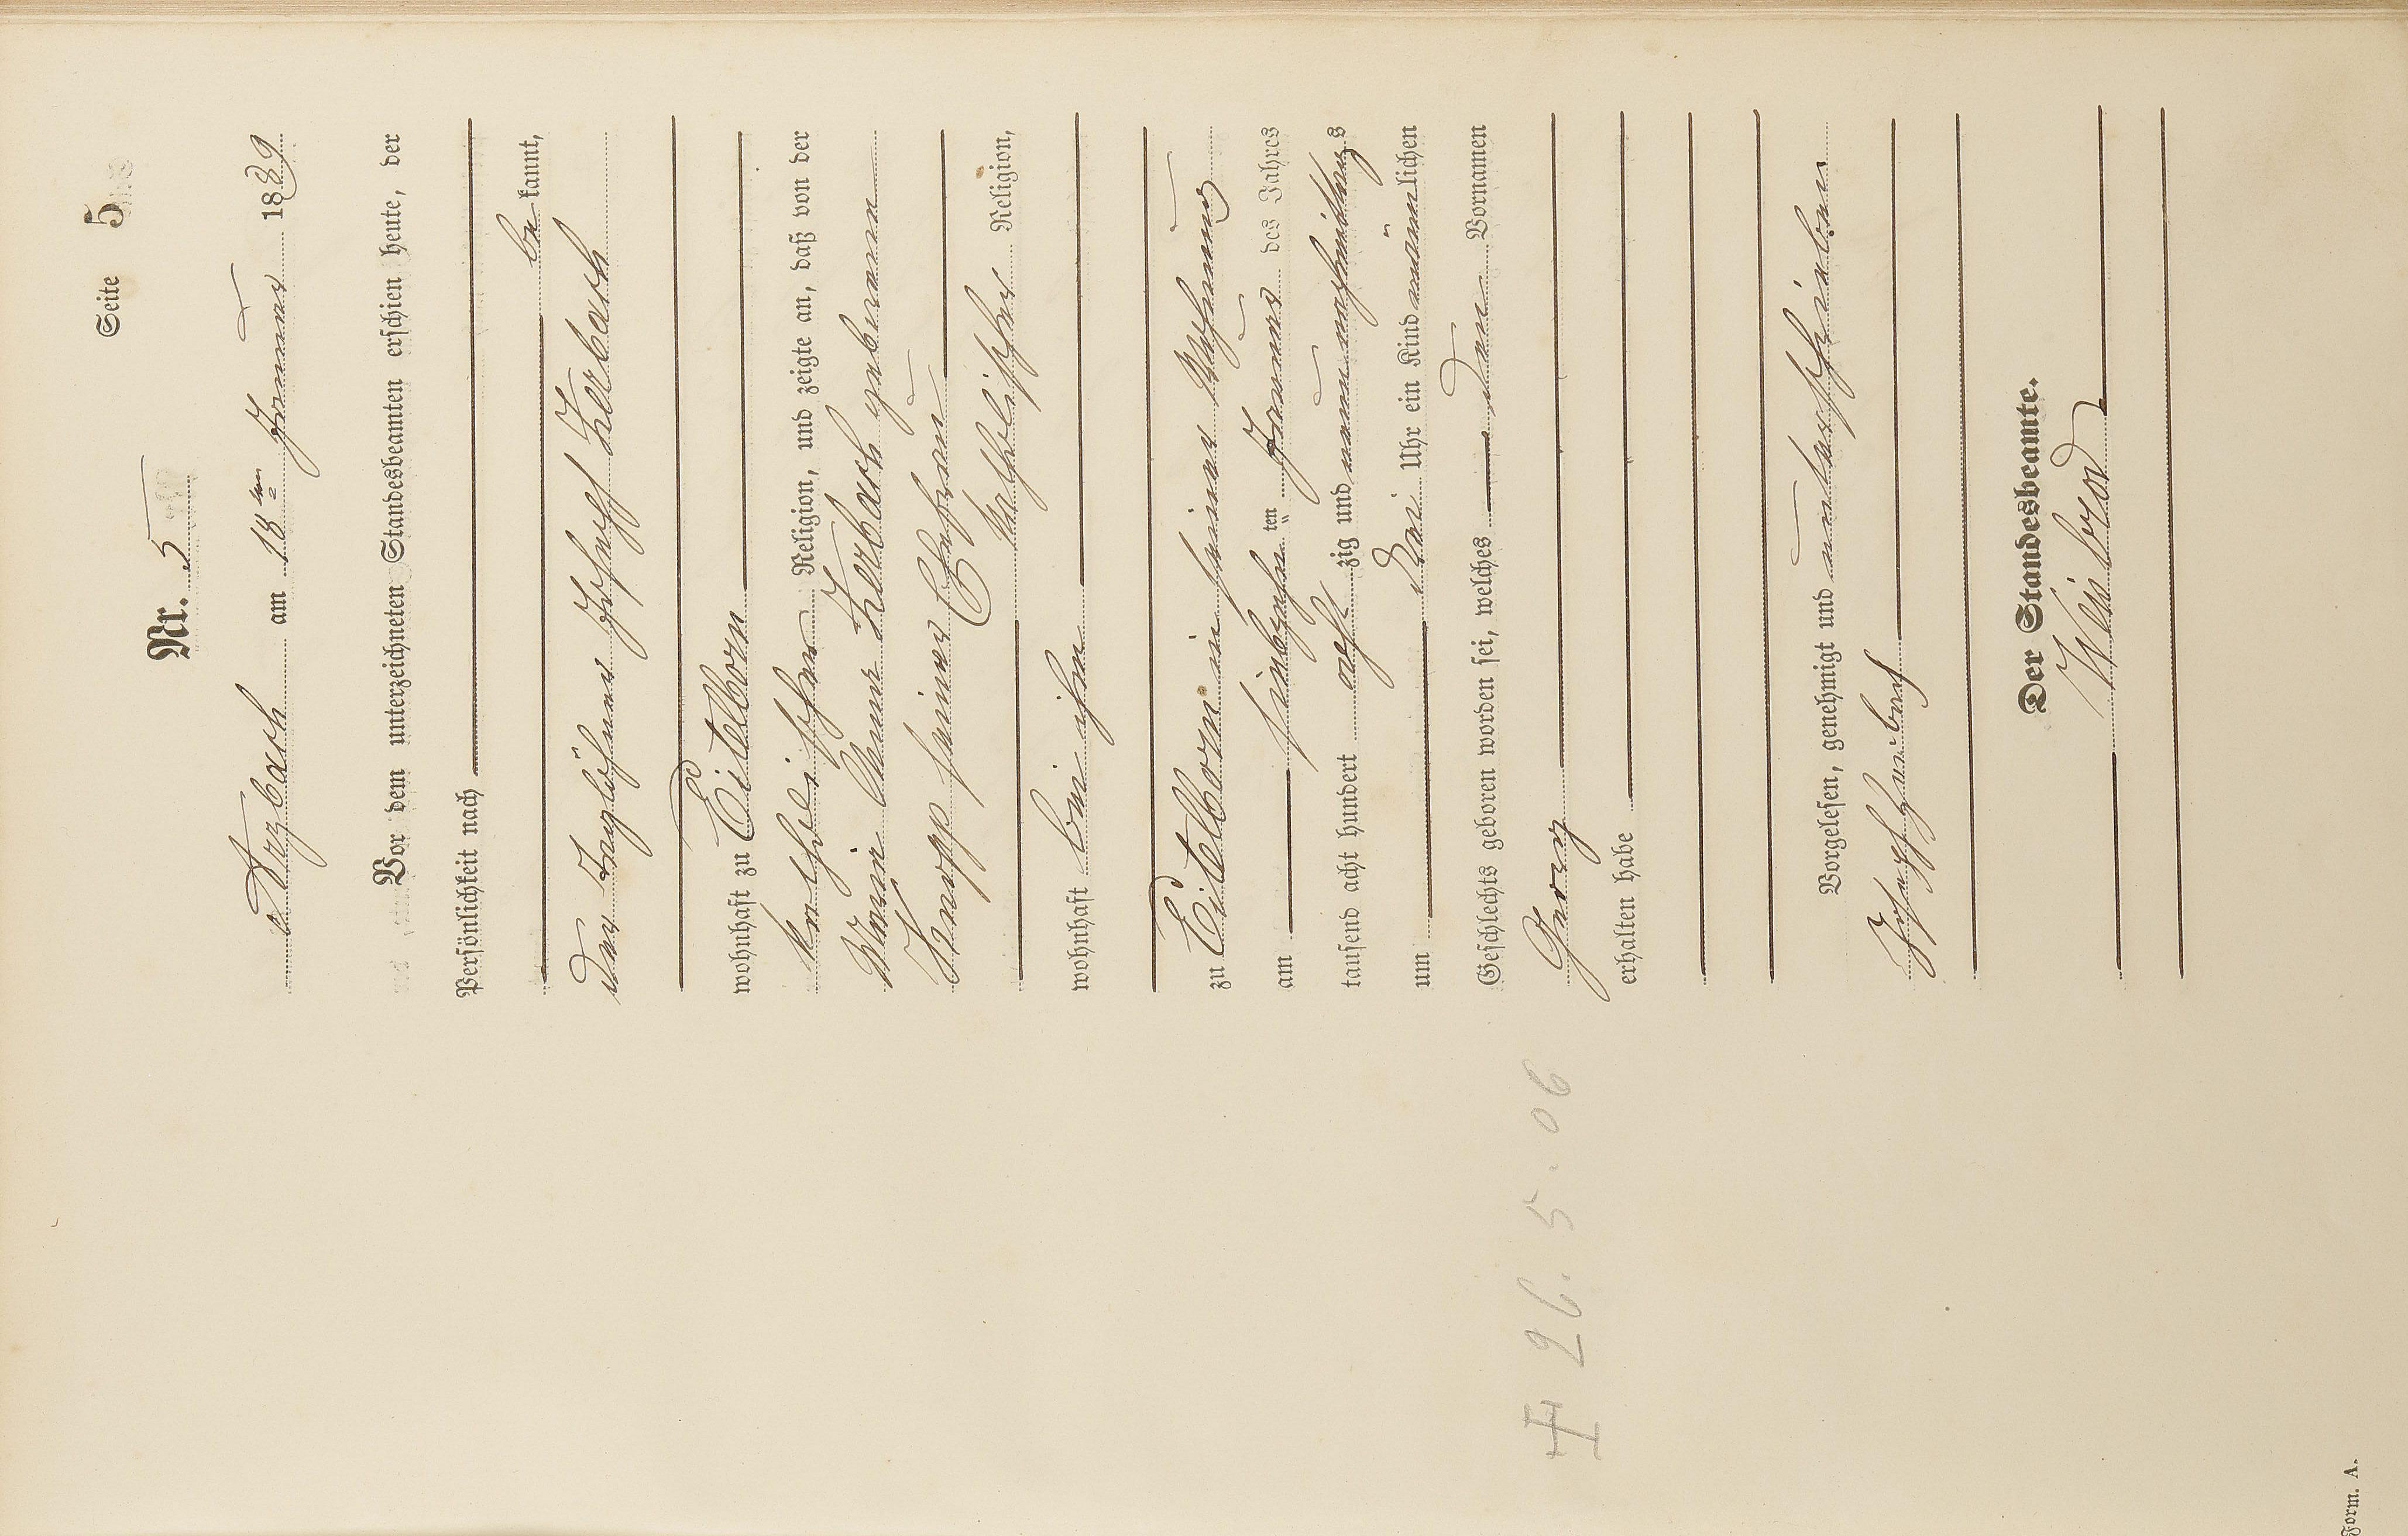 Seite 5
Nr. 5
Arzbach am 18ten Januar 1889
Vor dem unterzeichneten Standesbeamten erschien heute, der
Persönlichkeit nach
be kannt,
der Taglöhner Joseph Herbach
wohnhaft zu Eitelborn
katholischer Religion, und zeigte an, daß von der
Maria Anna Herbach geborenen
Knopp seiner Ehefrau
katholischer Religion,
wohnhaft bei ihm
zu Eitelborn in seiner Wohnung
am siebzehnten Januar des Jahres
tausend acht hundert acht zig und neun nachmittags
um drei Uhr ein Kind männlichen
Geschlechts geboren worden sei, welches den Vornamen
Georg
erhalten habe
Vorgelesen, genehmigt und unterschrieben
Joseph Herbach
Der Standesbeamte.
26. 5. 06
Form. A.